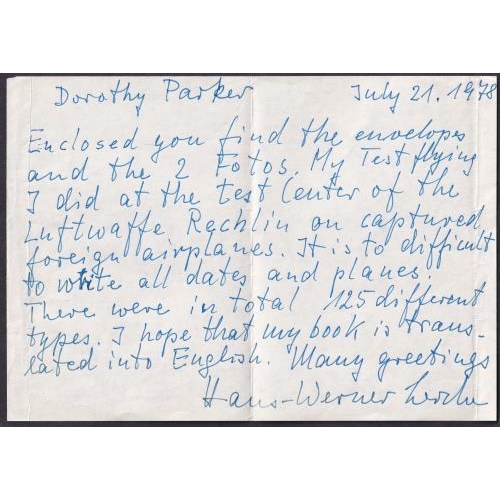 Dorothy Parker July 21. 1978
Enclosed you find the envelopes
and the 2 Fotos. My Testflying
I did at the test Center of the
Luftwaffe Rechlin on captured
foreign airplanes. It is to difficult
to write all dates and planes.
There were in total 125 different
types. I hope that my book is trans-
lated into English. Many greetings
Hans-Werner Lerche